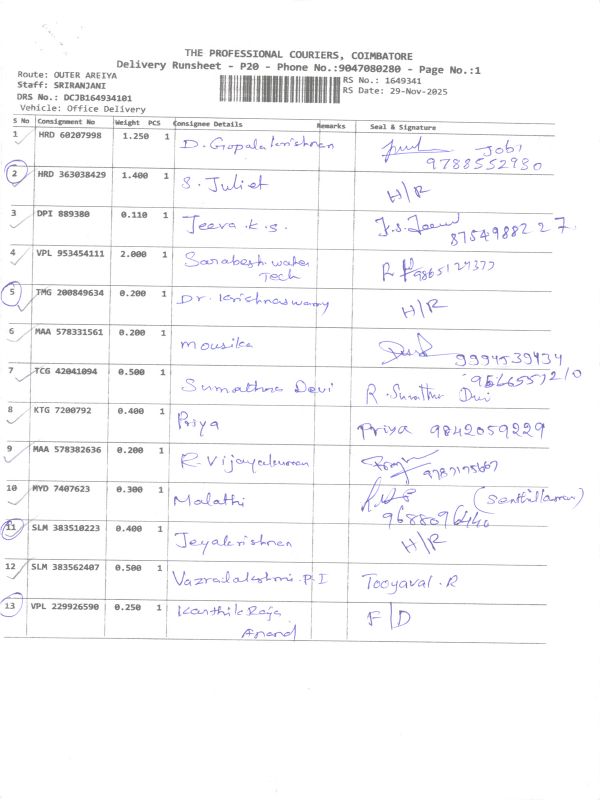 THE PROFESSIONAL COURIERS, COIMBATORE
Delivery Runsheet - P20 - Phone No.:9047080280 - Page No.:1
Route: OUTER AREIYA
Staff: SRIRANJANI
RS No.: 1649341
DRS No.: DCJB164934101
RS Date: 29-Nov-2025
Vehicle: Office Delivery
S No Consignment No Weight PCS Consignee Details Remarks Seal & Signature
1 HRD 60207998 1.250 1 D. Gopalakrishnan Jobi
9788552930
2 HRD 363038429 1.400 1 S. Juliet H/R
3 DPI 889380 0.110 1 Jeeva.k.s. J.S.Jeeva
8754988227.
4 VPL 953454111 2.000 1 Sarabesh water R
Tech
5 TMG 200849634 0.200 1 Dr. Krishnaswamy H/R
6 MAA 578331561 0.200 1 Mousika 9994539434
7 TCG 42041094 0.500 1 Sumathra Devi R. Sumathra Devi
8 KTG 7200792 0.400 1 Priya Priya 9842059229
9 MAA 578382636 0.200 1 R. Vijayakumar
10 MYD 7407623 0.300 1 Malathi
9688096440
11 SLM 383510223 0.400 1 Jeyakrishnan H/R
12 SLM 383562407 0.500 1 Vazradalakshmi.P.I Tooyaval.R
13 VPL 229926590 0.250 1 Karthik Raja F/D
Anand